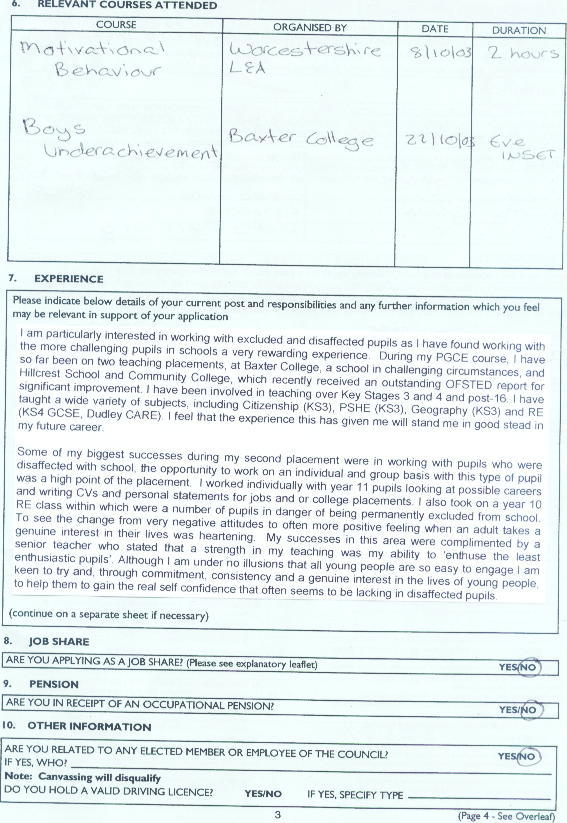 6. RELEVANT COURSES ATTENDED
COURSE ORGANISED BY DATE DURATION
Motivational Worcestershire 8/10/03 2 hours
Behaviour LEA
Boys Baxter College 22/10/03 Eve
Underachievement INSET
7. EXPERIENCE
Please indicate below details of your current post and responsibilities and any further information which you feel
may be relevant in support of your application
I am particularly interested in working with excluded and disaffected pupils as I have found working with
the more challenging pupils in schools a very rewarding experience. During my PGCE course, I have
so far been on two teaching placements, at Baxter College, a school in challenging circumstances, and
Hillcrest School and Community College, which recently received an outstanding OFSTED report for
significant improvement. I have been involved in teaching over Key Stages 3 and 4 and post-16. I have
taught a wide variety of subjects, including Citizenship (KS3), PSHE (KS3), Geography (KS3) and RE
(KS4 GCSE, Dudley CARE). I feel that the experience this has given me will stand me in good stead in
my future career.
Some of my biggest successes during my second placement were in working with pupils who were
disaffected with school, the opportunity to work on an individual and group basis with this type of pupil
was a high point of the placement. I worked individually with year 11 pupils looking at possible careers
and writing CVs and personal statements for jobs and or college placements. I also took on a year 10
RE class within which were a number of pupils in danger of being permanently excluded from school.
To see the change from very negative attitudes to often more positive feeling when an adult takes a
genuine interest in their lives was heartening. My successes in this area were complimented by a
senior teacher who stated that a strength in my teaching was my ability to 'enthuse the least
enthusiastic pupils'. Although I am under no illusions that all young people are so easy to engage I am
keen to try and, through commitment, consistency and a genuine interest in the lives of young people,
to help them to gain the real self confidence that often seems to be lacking in disaffected pupils.
(continue on a separate sheet if necessary)
8. JOB SHARE
ARE YOU APPLYING AS A JOB SHARE? (Please see explanatory leaflet) YES/NO
9. PENSION
ARE YOU IN RECEIPT OF AN OCCUPATIONAL PENSION? YES/NO
10. OTHER INFORMATION
ARE YOU RELATED TO ANY ELECTED MEMBER OR EMPLOYEE OF THE COUNCIL? YES/NO
IF YES, WHO?
Note: Canvassing will disqualify
DO YOU HOLD A VALID DRIVING LICENCE? YES/NO IF YES, SPECIFY TYPE
3
(Page 4 - See Overleaf)